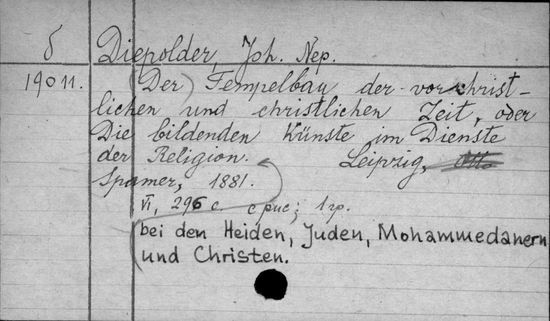 δ Diepolder, Joh. Nep.
19011. (Der) Tempelbau der vorchrist-
lichen und christlichen Zeit, oder
Die bildenden Künste im Dienste
der Religion. Leipzig, Otto
Spamer, 1881.
VI, 296 с. с рис; 1 гр.
bei den Heiden, Juden, Mohammedanern
und Christen.